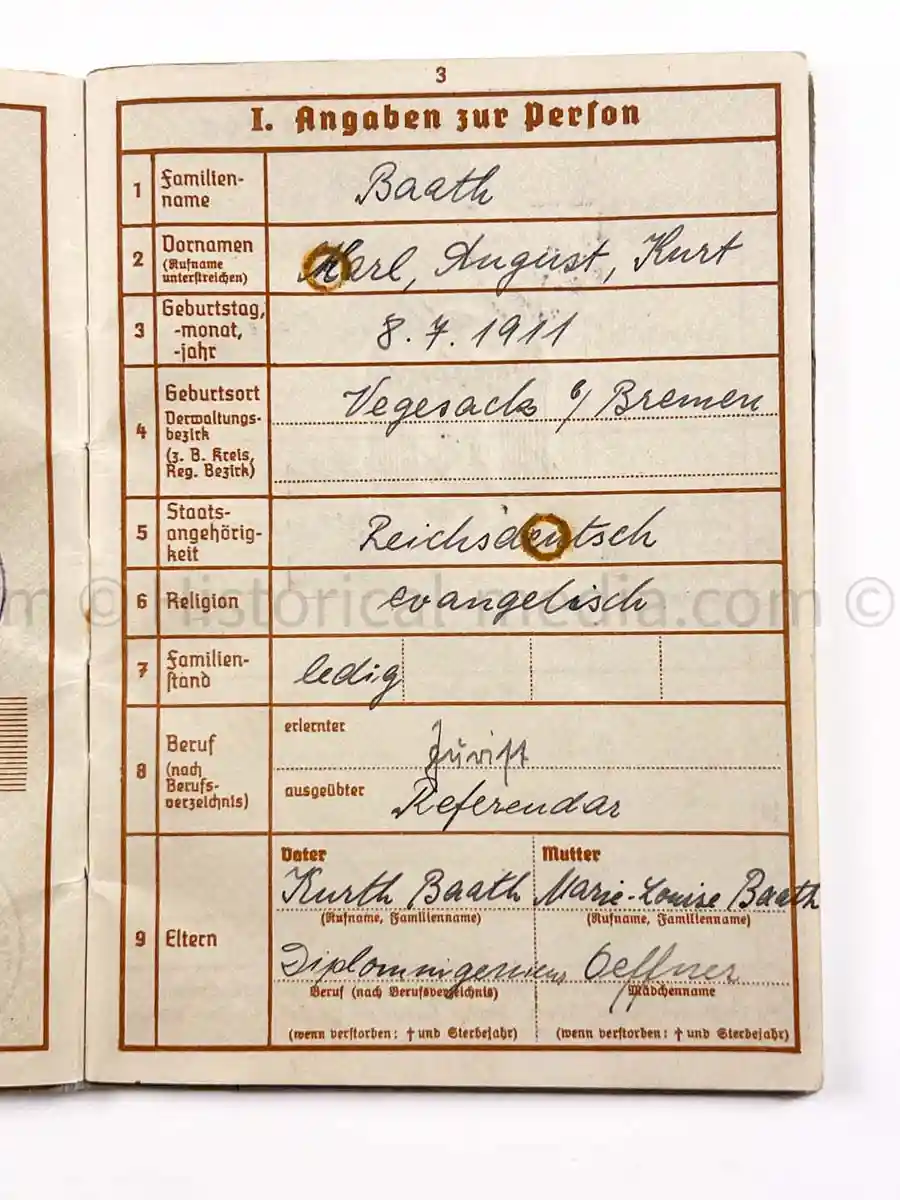 3
I. Angaben zur Person
1 Familien-
name
Baath
2 Vornamen
(Rufname
unterstreichen)
Karl, August, Kurt
3 Geburtstag,
-monat,
-jahr
8. 7. 1911
4 Geburtsort
Verwaltungs-
bezirk
(z. B. Kreis,
Reg. Bezirk)
Vegesack b/ Bremen
5 Staats-
angehörig-
keit
Reichsdeutsch
m © Historical-media.com ©
6 Religion
evangelisch
7 Familien-
stand
ledig
8 Beruf
(nach
Berufs-
verzeichnis)
erlernter
Jurist
ausgeübter
Referendar
9 Eltern
Vater
Kurth Baath
(Rufname, Familienname)
Diplomingenieur
Beruf (nach Berufsverzeichnis)
(wenn verstorben: † und Sterbejahr)
Mutter
Marie-Louise Baath
(Rufname, Familienname)
Oeffner
Mädchenname
(wenn verstorben: † und Sterbejahr)